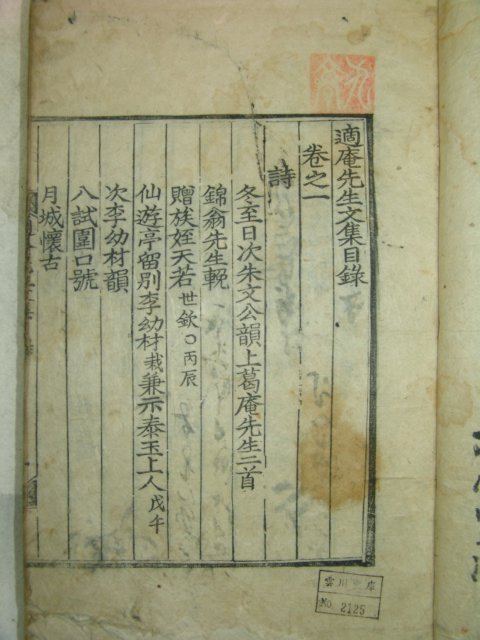 適庵先生文集目錄
卷之一
詩
冬至日次朱文公韻上葛庵先生二首
錦翁先生輓
贈族姪天若世欽○丙辰
仙遊亭留別李幼材栽兼示泰玉上人戊午
次李幼材韻
入試圍口號
月城懷古
雲川 庫
No. 2125